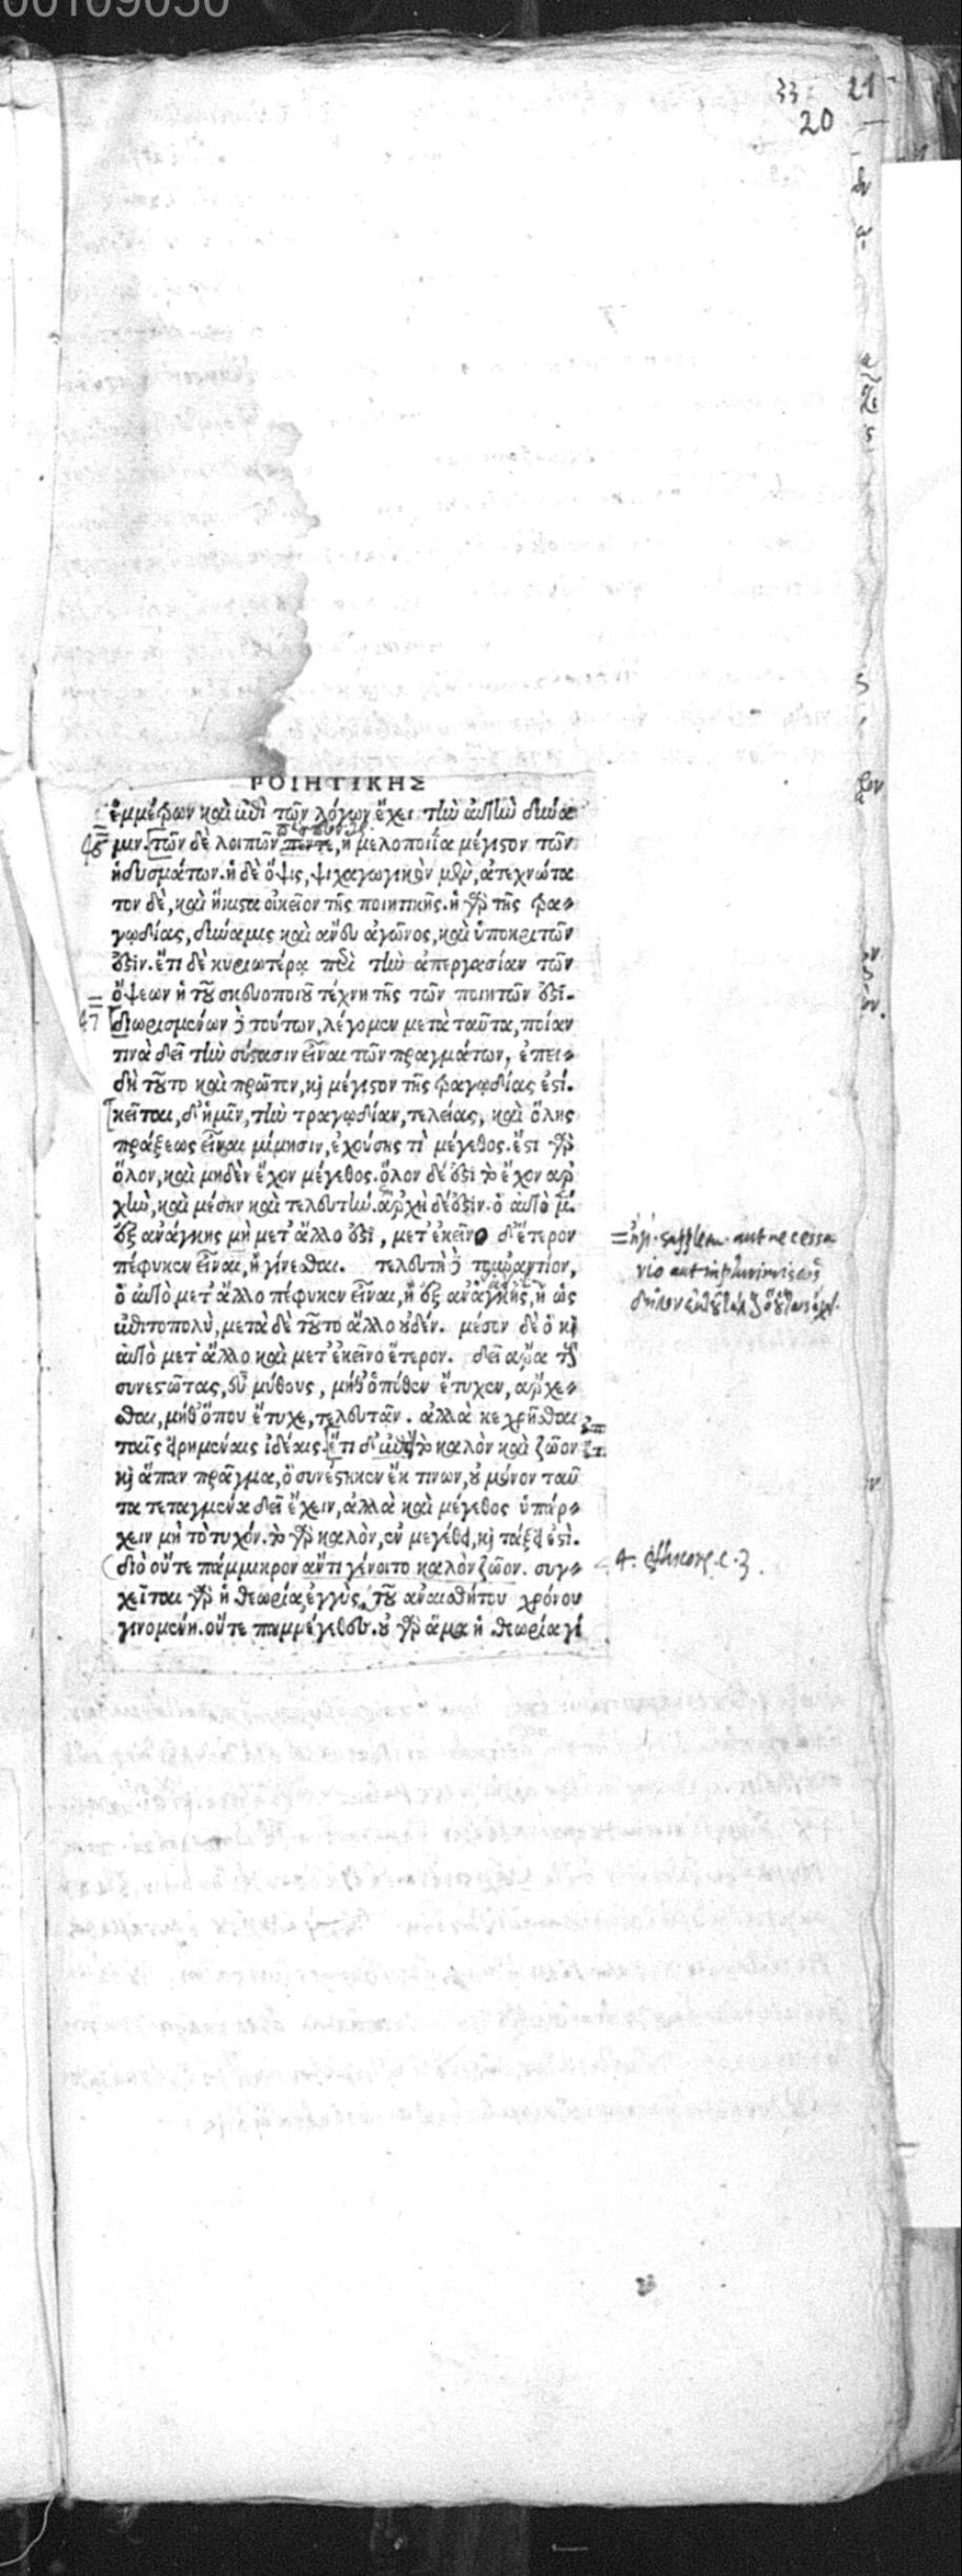 00109030
33 21
20
ΠΟΙΗΤΙΚΗΣ
ἐμμέτρων καὶ ἐπὶ τῶν λόγων ἔχει τὴν αὐτὴν δύνα
μιν. τῶν δὲ λοιπῶν πέντε, ἡ μελοποιΐα μέγιστον τῶν
ἡδυσμάτων. ἡ δὲ ὄψις, ψυχαγωγικὸν μὲν, ἀτεχνώτα
τον δὲ, καὶ ἥκιστα οἰκεῖον τῆς ποιητικῆς. ἡ γὰρ τῆς τρα-
γῳδίας, δύναμις καὶ ἄνευ ἀγῶνος, καὶ ὑποκριτῶν
ἐστίν. ἔτι δὲ κυριωτέρα περὶ τὴν ἀπεργασίαν τῶν
ὄψεων ἡ τοῦ σκευοποιοῦ τέχνη τῆς τῶν ποιητῶν ἐστί-
47 διωρισμένων δὲ τούτων, λέγομεν μετὰ ταῦτα, ποίαν
τινὰ δεῖ τὴν σύστασιν εἶναι τῶν πραγμάτων, ἐπει-
δὴ τοῦτο καὶ πρῶτον, καὶ μέγιστον τῆς τραγῳδίας ἐστί.
κεῖται, δ' ἡμῖν, τὴν τραγῳδίαν, τελείας, καὶ ὅλης
πράξεως εἶναι μίμησιν, ἐχούσης τὶ μέγεθος. ἔστι γὰρ
ὅλον, καὶ μηδὲν ἔχον μέγεθος. ὅλον δέ ἐστι τὸ ἔχον ἀρ
χὴν, καὶ μέσην καὶ τελευτήν. ἀρχὴ δέ ἐστιν. ὃ αὐτὸ μ.
ἐξ ἀνάγκης μὴ μετ' ἄλλο ἐστί, μετ' ἐκεῖνο δ' ἕτερον
πέφυκεν εἶναι, ἢ γίνεσθαι. τελευτὴ δὲ τοὐναντίον,
ὃ αὐτὸ μετ' ἄλλο πέφυκεν εἶναι, ἢ ἐξ ἀνάγκης, ἢ ὡς
ἐπιτοπολὺ, μετὰ δὲ τοῦτο ἄλλο οὐδέν. μέσον δὲ ὃ καὶ
αὐτὸ μετ' ἄλλο καὶ μετ' ἐκεῖνο ἕτερον. δεῖ ἄρα τοὺς
συνεστῶτας, εὖ μύθους, μήθ' ὁπόθεν ἔτυχεν, ἄρχε-
σθαι, μήθ' ὅπου ἔτυχε, τελευτᾶν. ἀλλὰ κεχρῆσθαι
ταῖς εἰρημέναις ἰδέαις. ἔτι δ' ἐπεὶ τὸ καλὸν καὶ ζῶον
καὶ ἅπαν πρᾶγμα, ὃ συνέστηκεν ἔκ τινων, οὐ μόνον ταῦ
τα τεταγμένα δεῖ ἔχειν, ἀλλὰ καὶ μέγεθος ὑπάρ-
χειν μὴ τὸ τυχόν. τὸ γὰρ καλὸν, ἐν μεγέθει, καὶ τάξει ἐστί.
διὸ οὔτε πάμμικρον ἄν τι γένοιτο καλὸν ζῶον. συγ-
χεῖται γὰρ ἡ θεωρία, ἐγγὺς τοῦ ἀναισθήτου χρόνου
γινομένη. οὔτε παμμέγεθες. οὐ γὰρ ἅμα ἡ θεωρία γί
aut necessa
rio aut
4. c. 3.